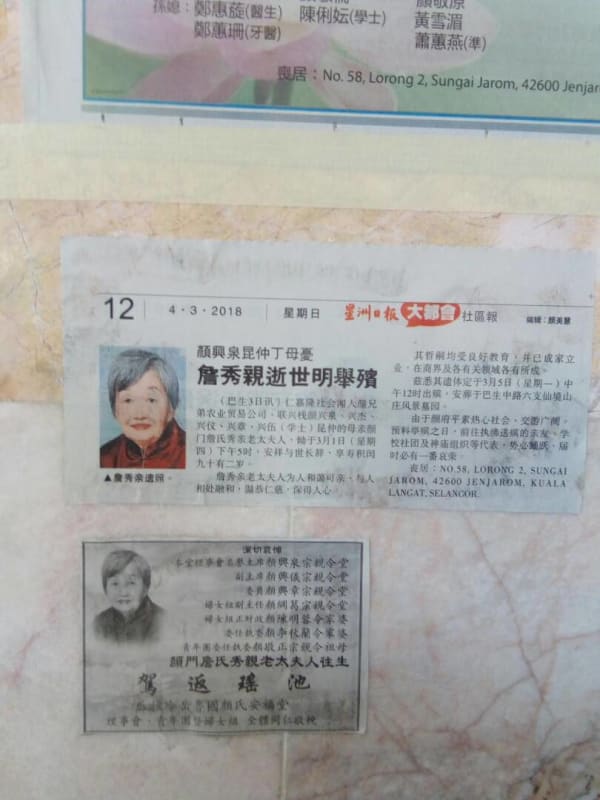 孫媳：鄭惠蔙(醫生) 陳俐妘(學士)
顏敬原
黃雪湄
鄭蕙珊(牙醫)
蕭蕙燕(準)
喪居：No. 58, Lorong 2, Sungai Jarom, 42600 Jenjar
12
4·3·2018
星期日
星洲日报 大都會 社區報
编辑：顏美慧
顏興泉昆仲丁母憂
詹秀親逝世明舉殯
▲詹秀亲遗照。
（巴生3日讯）仁嘉隆社会闻人颜兄
弟农业贸易公司、联兴栈颜兴泉、兴杰、
兴仪、兴章、兴伍（学士）昆仲的母亲颜
门詹氏秀亲老太夫人，恸于3月1日（星期
四）下午5时，安祥与世长辞，享寿积闰
九十有二岁。
詹秀亲老太夫人为人和蔼可亲，与人
相处融和，温恭仁慈，深得人心。
其哲嗣均受良好教育，并已成家立
业，在商界及各有关领域各有所成。
兹悉其遗体定于3月5日（星期一）中
午12时出殡，安葬于巴生中路六支仙境山
庄风景墓园。
由于颜府平素热心社会，交游广阔，
预料举殡之日，前往执拂送殡的亲友、学
校社团及神庙组织等代表，势必踊跃，届
时必有一番哀荣。
丧居：NO.58, LORONG 2, SUNGAI
JAROM, 42600 JENJAROM, KUALA
LANGAT, SELANGOR.
深切哀悼
本堂理事會名譽主席顏興泉宗親令堂
副主席顏興儀宗親令堂
委員顏興章宗親令堂
婦女組副主任顏綢葛宗親令堂
婦女組正財政顏陳明蓉令家婆
委任執委顏李休蘭令家婆
青年團委任執委顏敬正宗親令祖母
顏門詹氏秀親老太夫人往生
駕返瑤池
魯國顏氏安福堂
理事會、青年團暨婦女組 全體同仁敬輓